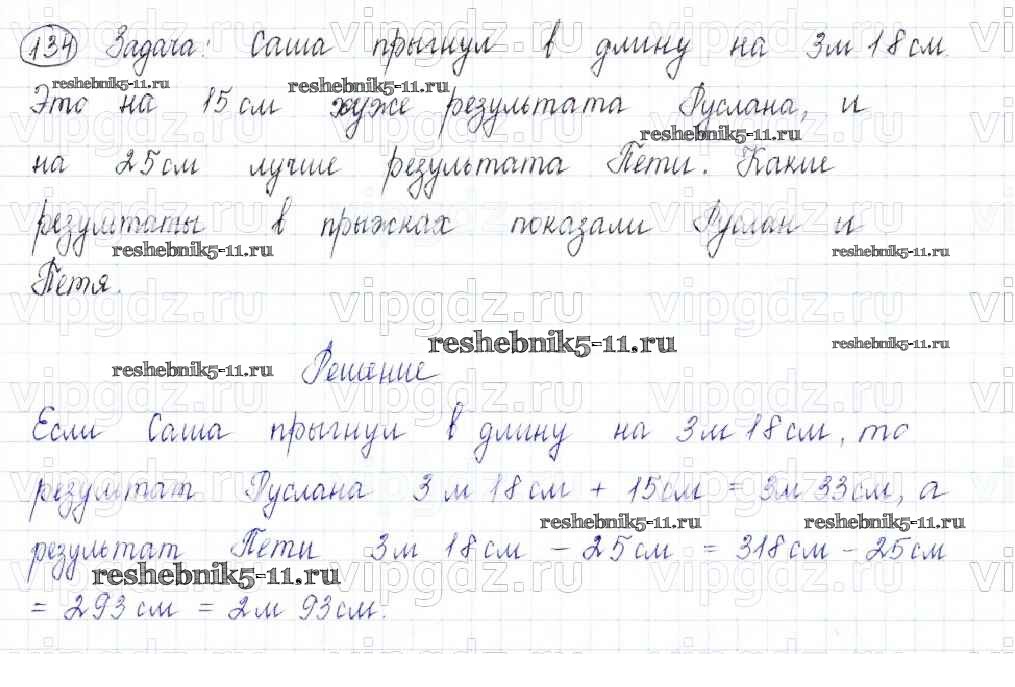 134 Задача: Саша прыгнул в длину на 3м 18см.
reshebnik5-11.ru reshebnik5-11.ru
Это на 15см хуже результата Руслана, и
reshebnik5-11.ru
на 25см лучше результата Пети. Какие
результаты в прыжках показали Руслан и
reshebnik5-11.ru reshebnik5-11.ru
Петя.
vipgdz.ru vipgdz.ru vipgdz.ru
reshebnik5-11.ru reshebnik5-11.ru
reshebnik5-11.ru Решение
Если Саша прыгнул в длину на 3м 18см, то
результат Руслана 3м 18см + 15см = 3м 33см, а
reshebnik5-11.ru reshebnik5-11.ru
результат Пети 3м 18см - 25см = 318см - 25см
reshebnik5-11.ru
= 293см = 2м 93см.